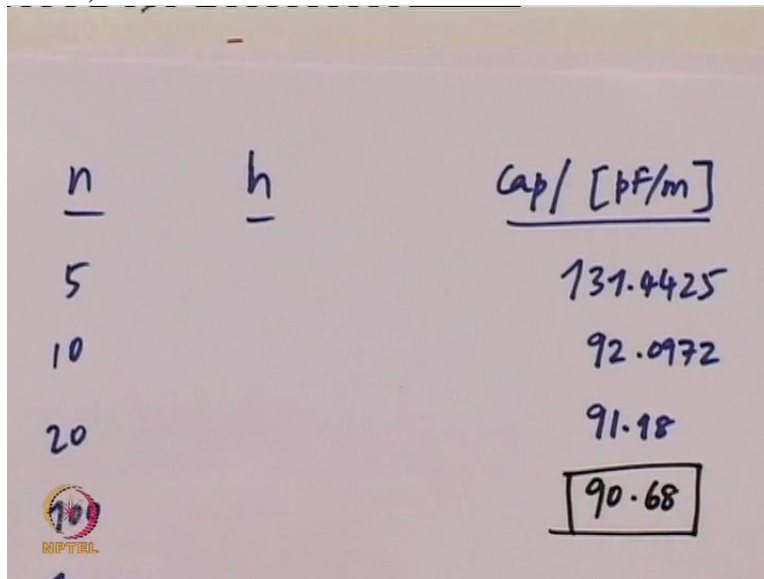 n h Cap/ [pF/m]
5 131.4425
10 92.0972
20 91.18
100 90.68
NPTEL